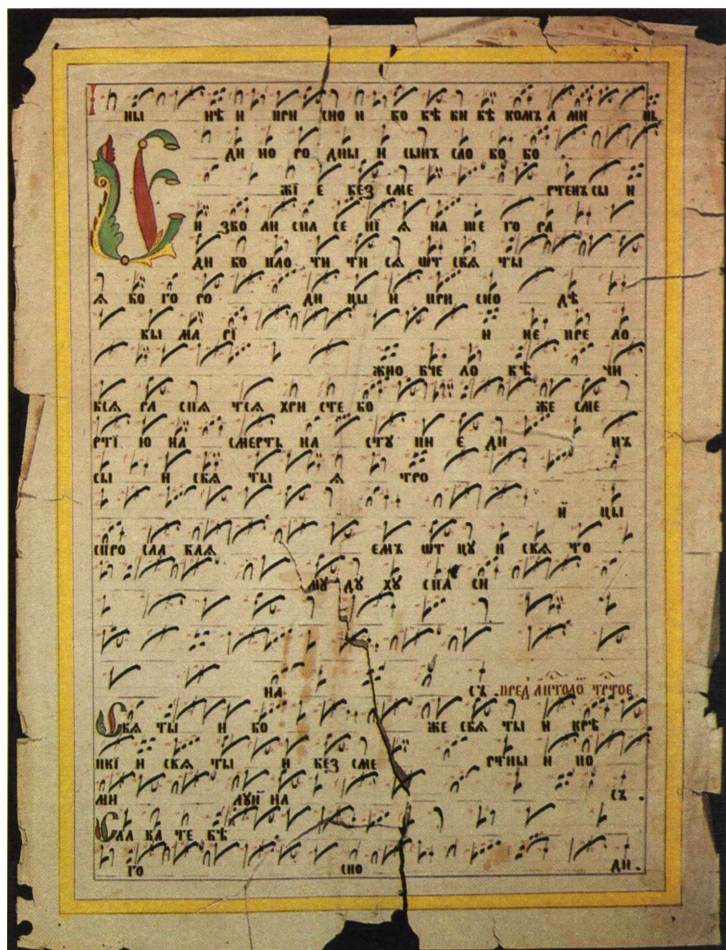 И ны нѣ и при сно и во вѣ ки вѣ комъ а ми нь
Є ди но ро дны и сынъ сло во бо
жї е без сме ртенъ сы и
и зво ли спа се нї ѧ на ше го ра
ди во пло ти ти сѧ ѿт свѧ ты
ѧ бо го ро ди цы и при сно дѣ
вы ма рї и не пре ло
жно вче ло вѣ чи
всѧ ра спѧ тсѧ хри сте бо же сме
ртї ю на смерть на сту пи е ди нъ
сы и свѧ ты ѧ тро
й цы
спро сла влѧ емъ ѿт цу и свѧ то
му ду ху спа си
на съ пред литоло трⷭтое
Свѧ ты и бо же свѧ ты и крѣ
пкї и свѧ ты и без сме ртны и по
ми луй на съ
Сла ва те бѣ
го спо ди